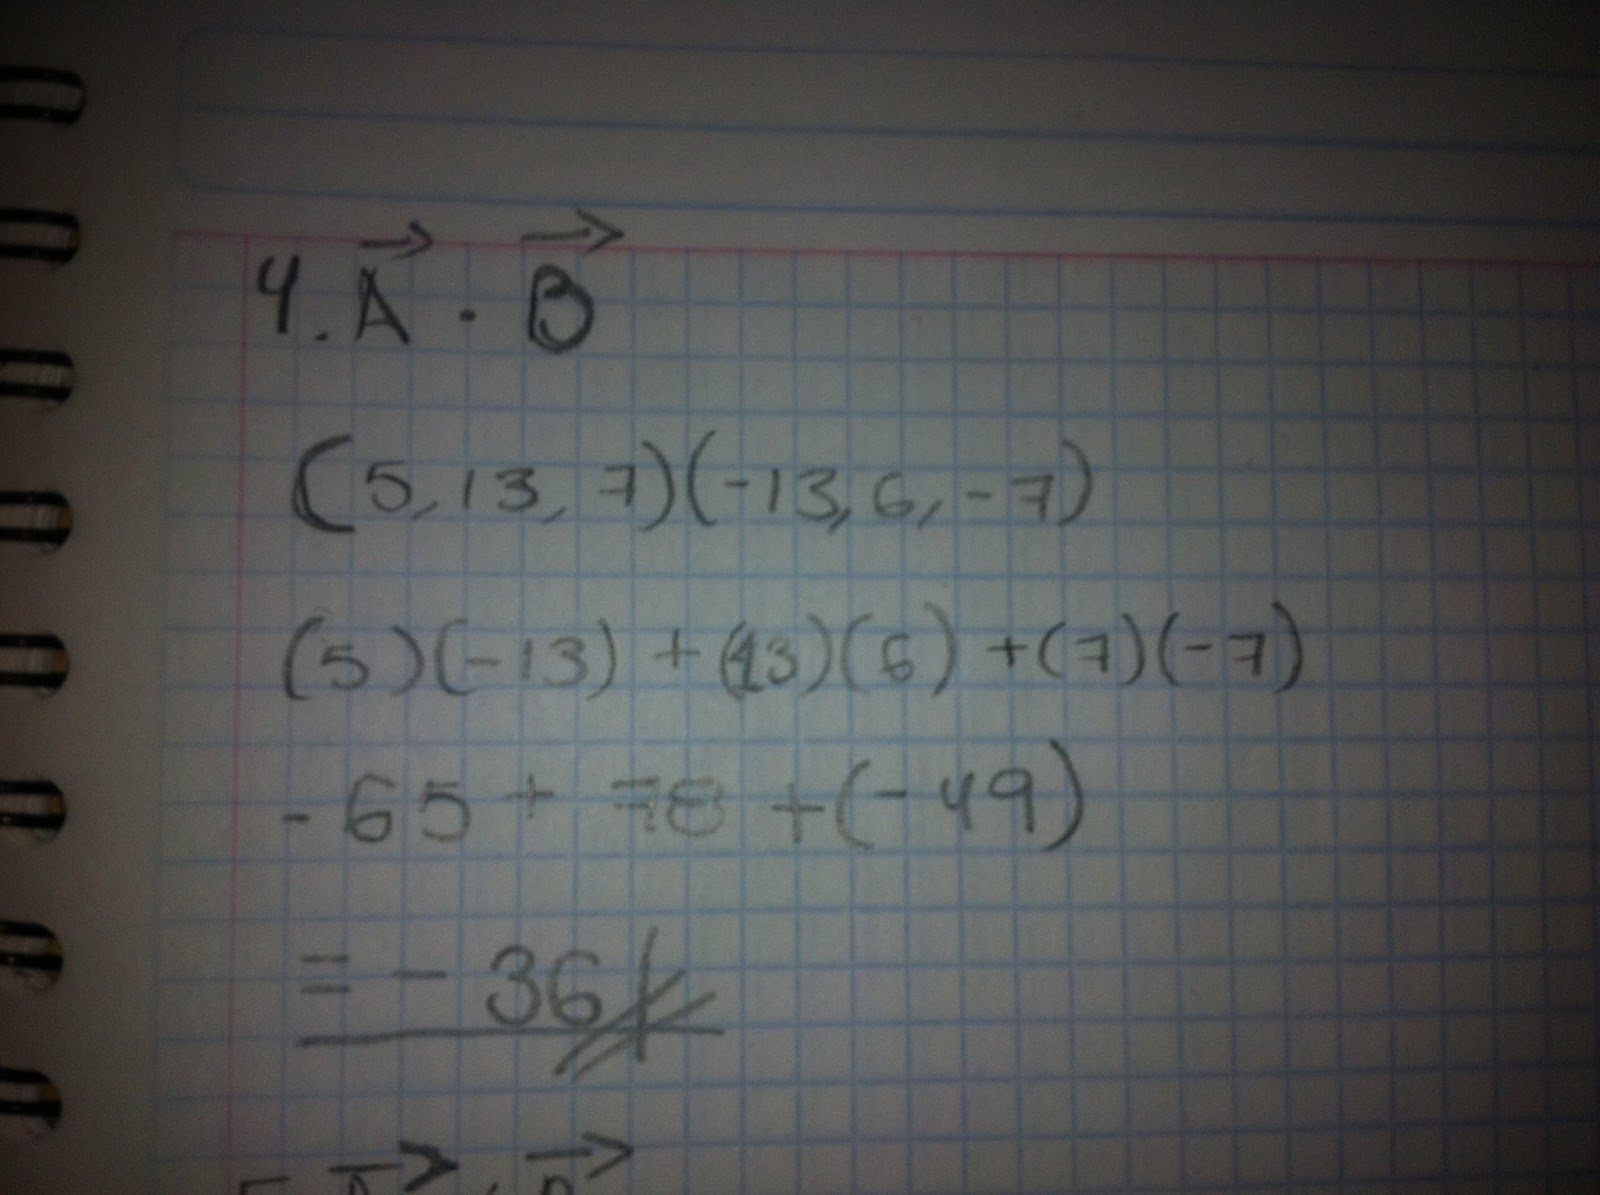 4. A · B
(5, 13, 7)(-13, 6, -7)
(5)(-13) + (13)(6) + (7)(-7)
-65 + 78 + (-49)
= - 36